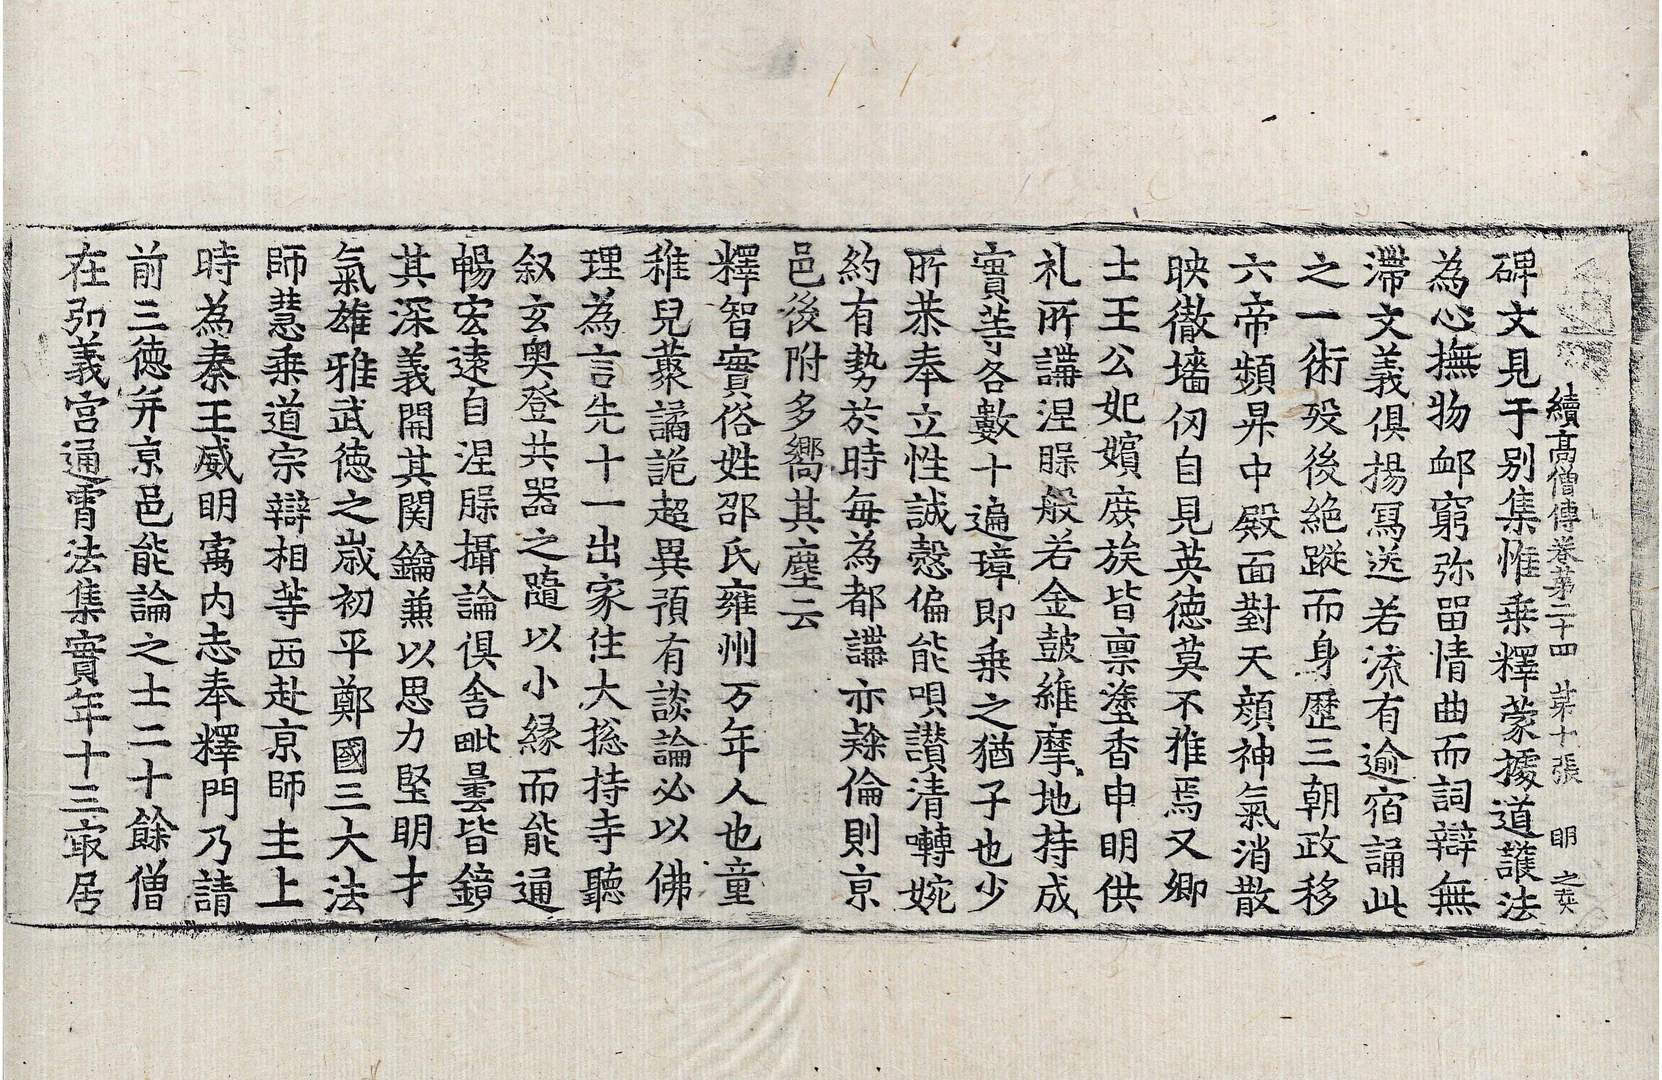 續高僧傳卷苐二十四　苐十張　明
碑文見于別集惟乗釋蒙據道護法
為心撫物䘏窮弥留情曲而詞辯無
滯文義俱揚冩送若流有逾宿誦此
之一術歿後絶蹤而身歷三朝政移
六帝頻昇中殿面對天顔神氣消散
映徹墻仞自見英徳莫不推焉又卿
士王公妃嬪庶族皆禀塗香申明供
礼所講涅槃般若金皷維摩地持成
實䓁各數十遍璋即乗之猶子也少
所恭奉立性誠慤偏能唄讃清囀婉
約有勢於時每為都講亦難倫則亰
邑後附多嚮其塵云
釋智實俗姓邵氏雍州万年人也童
稚兒藂譎詭超異預有談論必以佛
理為言先十一出家住大揔持寺聽
叙玄奥登共器之隨以小縁而能通
暢宏遠自涅槃攝論俱舍毗曇皆鏡
其深義開其関鑰兼以思力堅明才
氣雄雅武徳之歳初平鄭國三大法
師慧乗道宗辯相䓁西赴亰師主上
時為秦王威明寓内志奉釋門乃請
前三徳并亰邑能論之士二十餘僧
在弘義宫通宵法集實年十三冣居